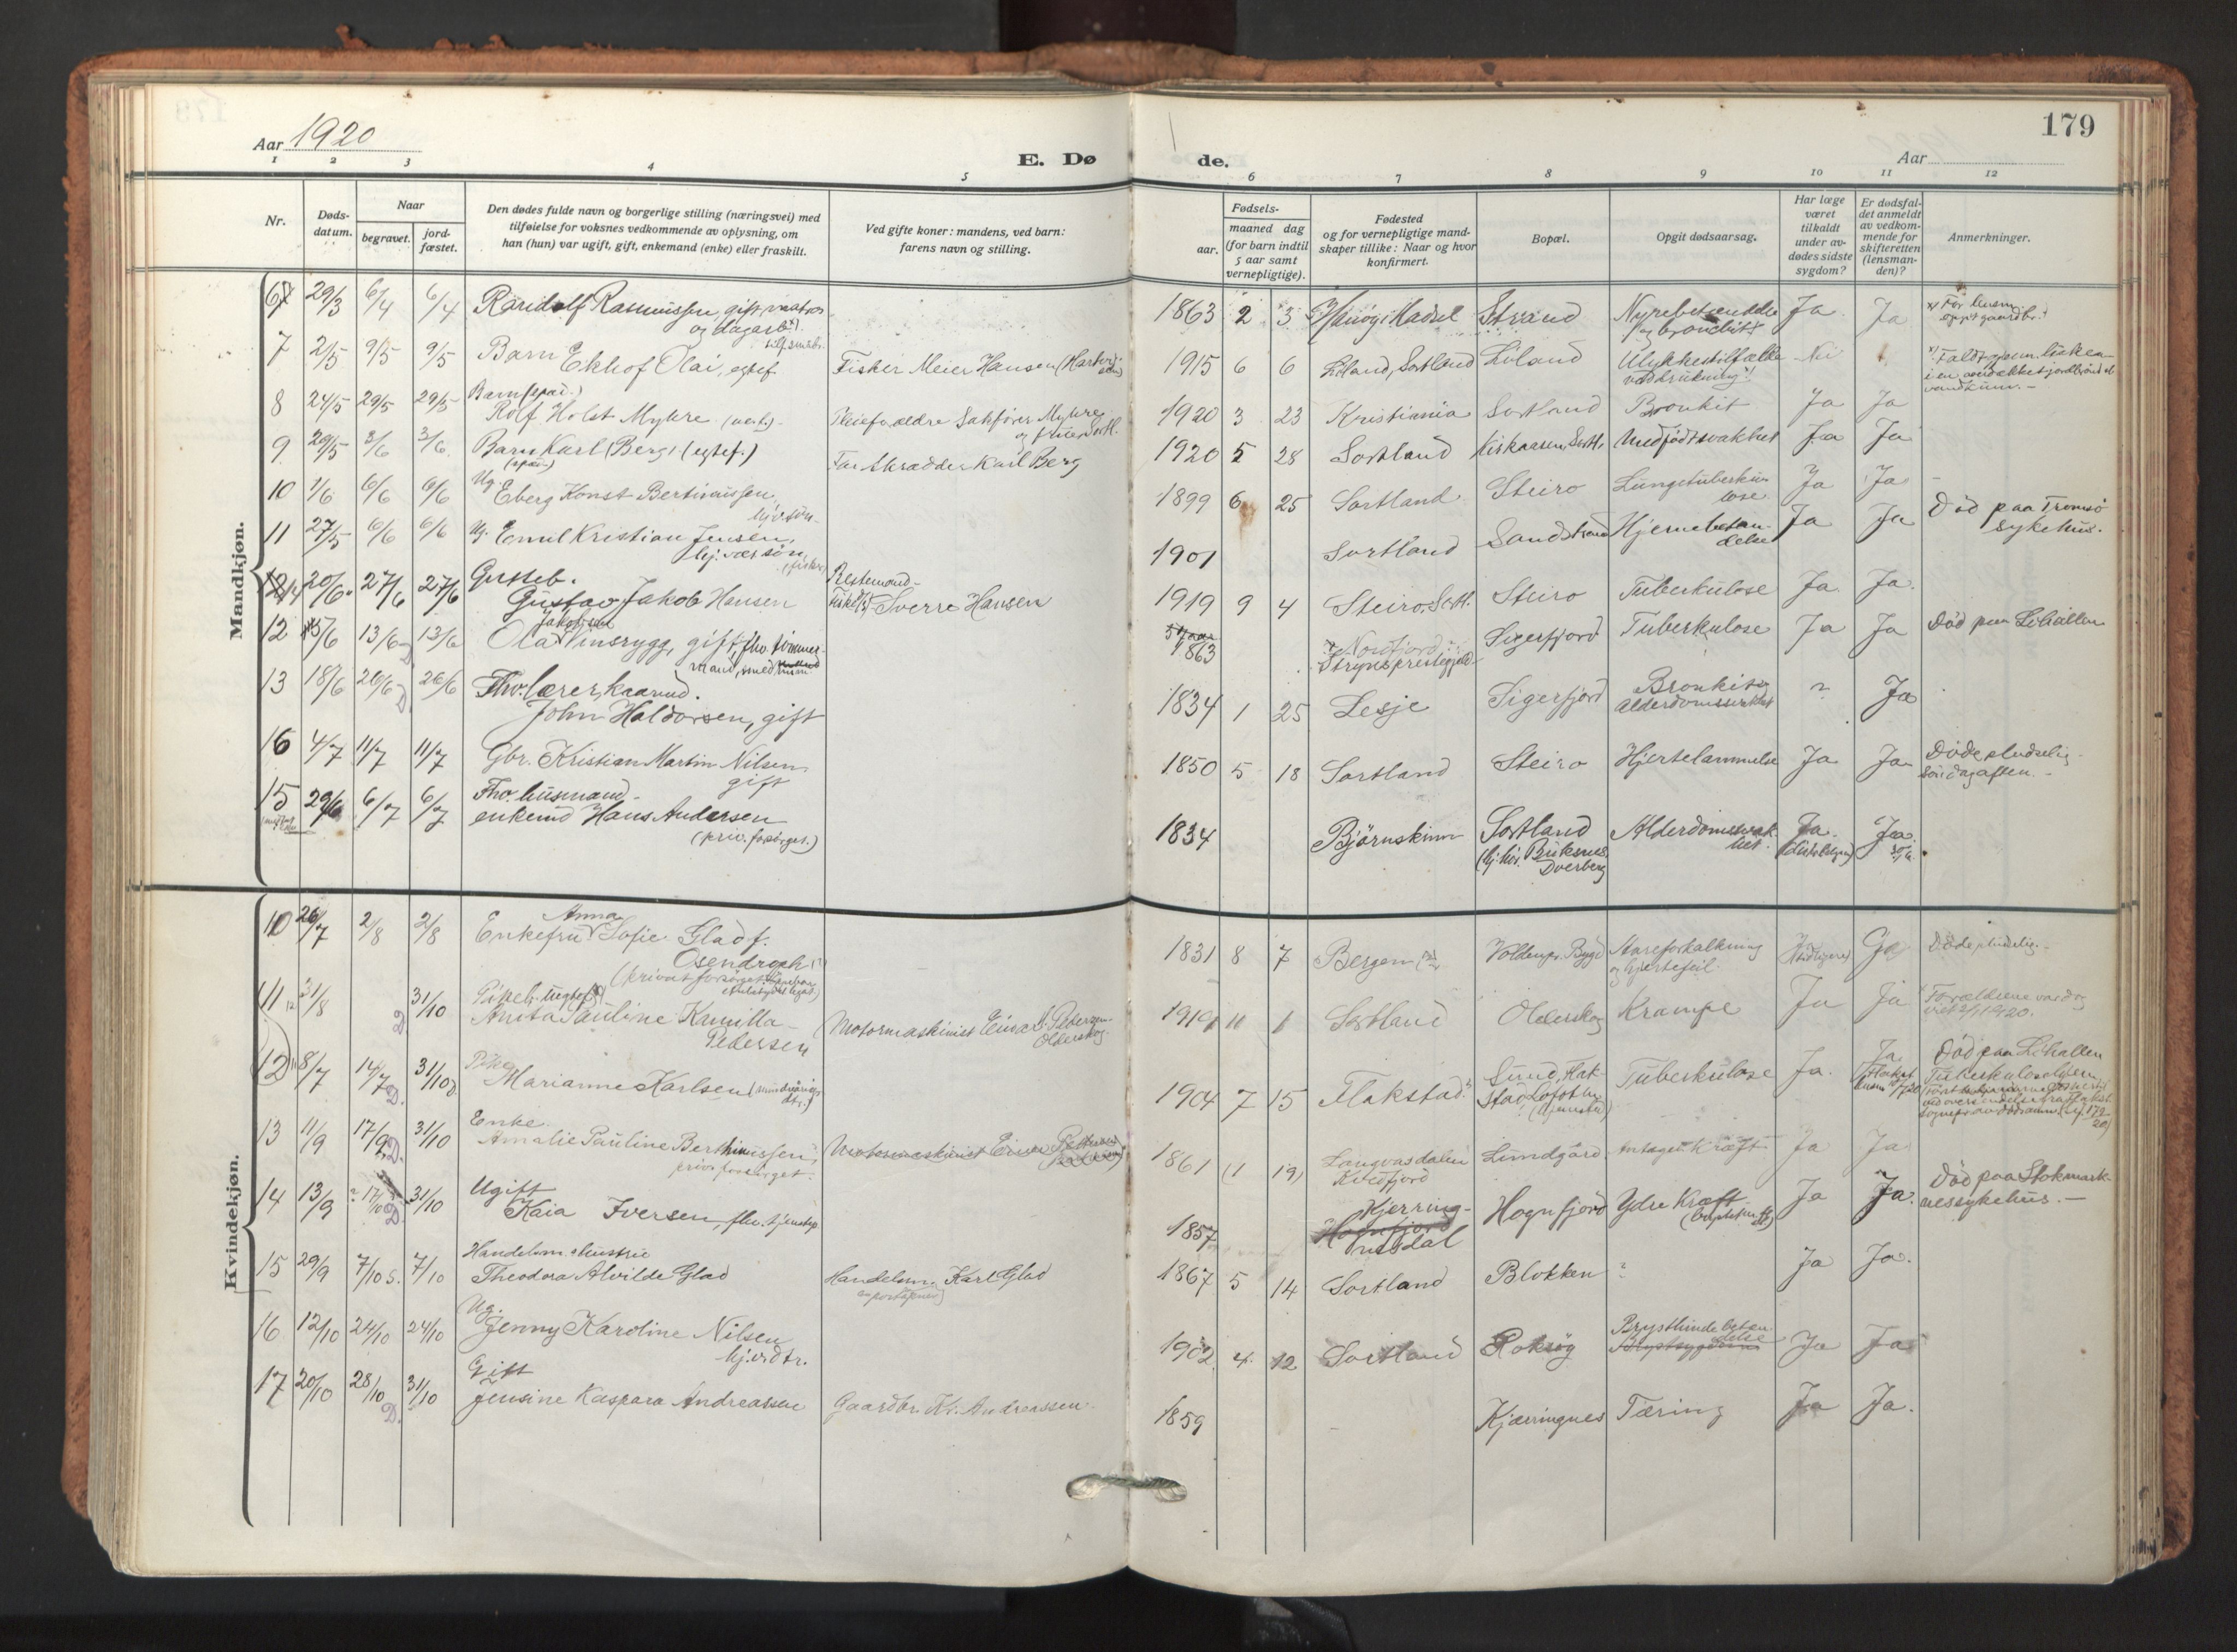 179
Aar 1920
E. Dø
de.
Aar
1 2 3 4 5 6 7 8 9 10 11 12
Nr.
Døds-
datum.
Naar
begravet.
jord-
fæstet.
Den dødes fulde navn og borgerlige stilling (næringsvei) med
tilføielse for voksnes vedkommende av oplysning, om
han (hun) var ugift, gift, enkemand (enke) eller fraskilt.
Ved gifte koner: mandens, ved barn:
farens navn og stilling.
Fødsels-
aar.
maaned dag
(for barn indtil
5 aar samt
vernepligtige).
Fødested
og for vernepligtige mand-
skaper tillike: Naar og hvor
konfirmert.
Bopæl.
Opgit dødsaarsag.
Har læge
været
tilkaldt
under av-
dødes sidste
sygdom?
Er dødsfal-
det anmeldt
av vedkom-
mende for
skifteretten
(lensman-
den)?
Anmerkninger.
Mandkjøn.
6 29/3 6/4 6/4 Randolf Rasmussen, gift
og dagarb.
1863 2 3 Hadsel Strand Nyrebetændelse
og bronchitt
Ja Ja
7 2/5 9/5 9/5 Barn Ekhof Olai, egtef. Fisker Meier Hansen
1915 6 6 Liland, Sortland Liland Ulykkestilfælde
ved drukning
Nei
8 24/5 29/5 29/5 Barn (spæd.)
Rolf Holst Myhre Pleieforældre Sakfører Myhre
og frue Sortl.
1920 3 23 Kristiania Sortland Bronkit Ja Ja
9 29/5 3/6 3/6 Barn Karl (Berg) (egtef.)
(spæd) Far skrædder Karl Berg
1920 5 28 Sortland Medfødt svakhet Ja Ja
10 1/6 6/6 6/6 Ug. Eberg Konst Bertinussen,
1899 6 25 Sortland Steiro Lungetuberku-
lose Ja Ja -
11 27/5 6/6 6/6 Ug. Emil Kristian Jensen,
hj. vær. søn
(fisker)
1901 Sortland Sandstrand Hjernebetæn-
delse Ja Ja Død paa Tromsø
sykehus.
14 20/6 27/6 27/6 Gutteb.
Gustav Jakob Hansen
Sverre Hansen
1919 9 4 Steiro, Sortl. Steiro Tuberkulose Ja. Ja.
12 5/6 13/6 13/6 Jakobsen
Ola Vinsrygg, gift, fhv. tømmer-
mand, smed
1863 Nordfjord
Stryns prestegjeld Sigerfjord Tuberkulose Ja Ja Død paa Lihallen
13 18/6 26/6 26/6 Fhv. lærer, kaarmd.
John Haldorsen, gift
1834 1 25 Lesje Sigerfjord Bronkit og
Alderdomssvakhet ? Ja
16 4/7 11/7 11/7 Gbr. Kristian Martin Nilsen
gift
1850 5 18 Sortland Steiro Hjertelammelse Ja Ja Døde pludselig
Søndag aften. -
15 29/6 6/7 6/7 Fhv. husmand
enkemd Hans Andersen
(priv. forsørget.)
1834 Bjørnskinn Sortland
(hj.hør. Buksnes
Dverberg Alderdomssvak-
het. Ja Ja.
Kvindekjøn.
10 26/7 2/8 2/8 Anna
Enkefru Sofie Glad f.
Osendroph
1831 8 7 Bergen Aareforkalkning
og hjertefeil. Ja Døde pludselig. -
11 31/8 31/10 Pikeb.
Anita Pauline Kamilla
Pedersen Motormaskinist Einar Pedersen
Olderskog
1919 11 1 Sortland Olderskog Krampe Ja Ja Forældrene var dog
viet 2/1 1920.
12 8/7 14/7 31/10 Pike
Marianne Karlsen
1904 7 15 Flakstad Sund, Flak-
stad, Lofoten Tuberkulose Ja. Ja Død paa Lihallen
13 11/9 17/9 31/10 Enke.
Amalie Pauline Berthinussen,
priv. forsørget. Motormaskinist Einar Pedersen
1861 (1 19) Langvasdalen
Kvedfjord Lundgård Antagel. Kræft Ja Ja
14 13/9 17/10 31/10 Ugift
Kaia Iversen, fhv. tjenstep.
1857 Kjerring-
nesdal Hognfjord Ydre Kræft Ja Ja. Død paa Stokmark-
nes sykehus. -
15 29/9 7/10 7/10 Handelsm. hustru
Theodora Alvilde Glad Handelsm. Karl Glad
1867 5 14 Sortland Blokken ? Ja Ja.
16 12/10 24/10 24/10 Ug.
Jenny Karoline Nilsen
1902 4 12 Sortland Roksøy Brysthindebetæn-
delse Ja Ja
17 20/10 28/10 31/10 Gift
Jensine Kaspara Andreassen Gaardbr. Kr. Andreassen
1859 Kjærringnes Tæring Ja Ja.